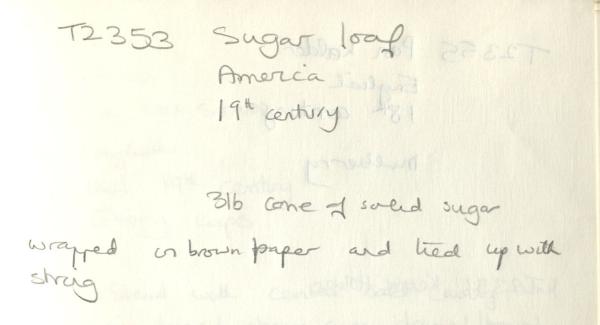 T2353 Sugar loaf
America
19th century
3lb cone of solid sugar
wrapped in brown paper and tied up with
string